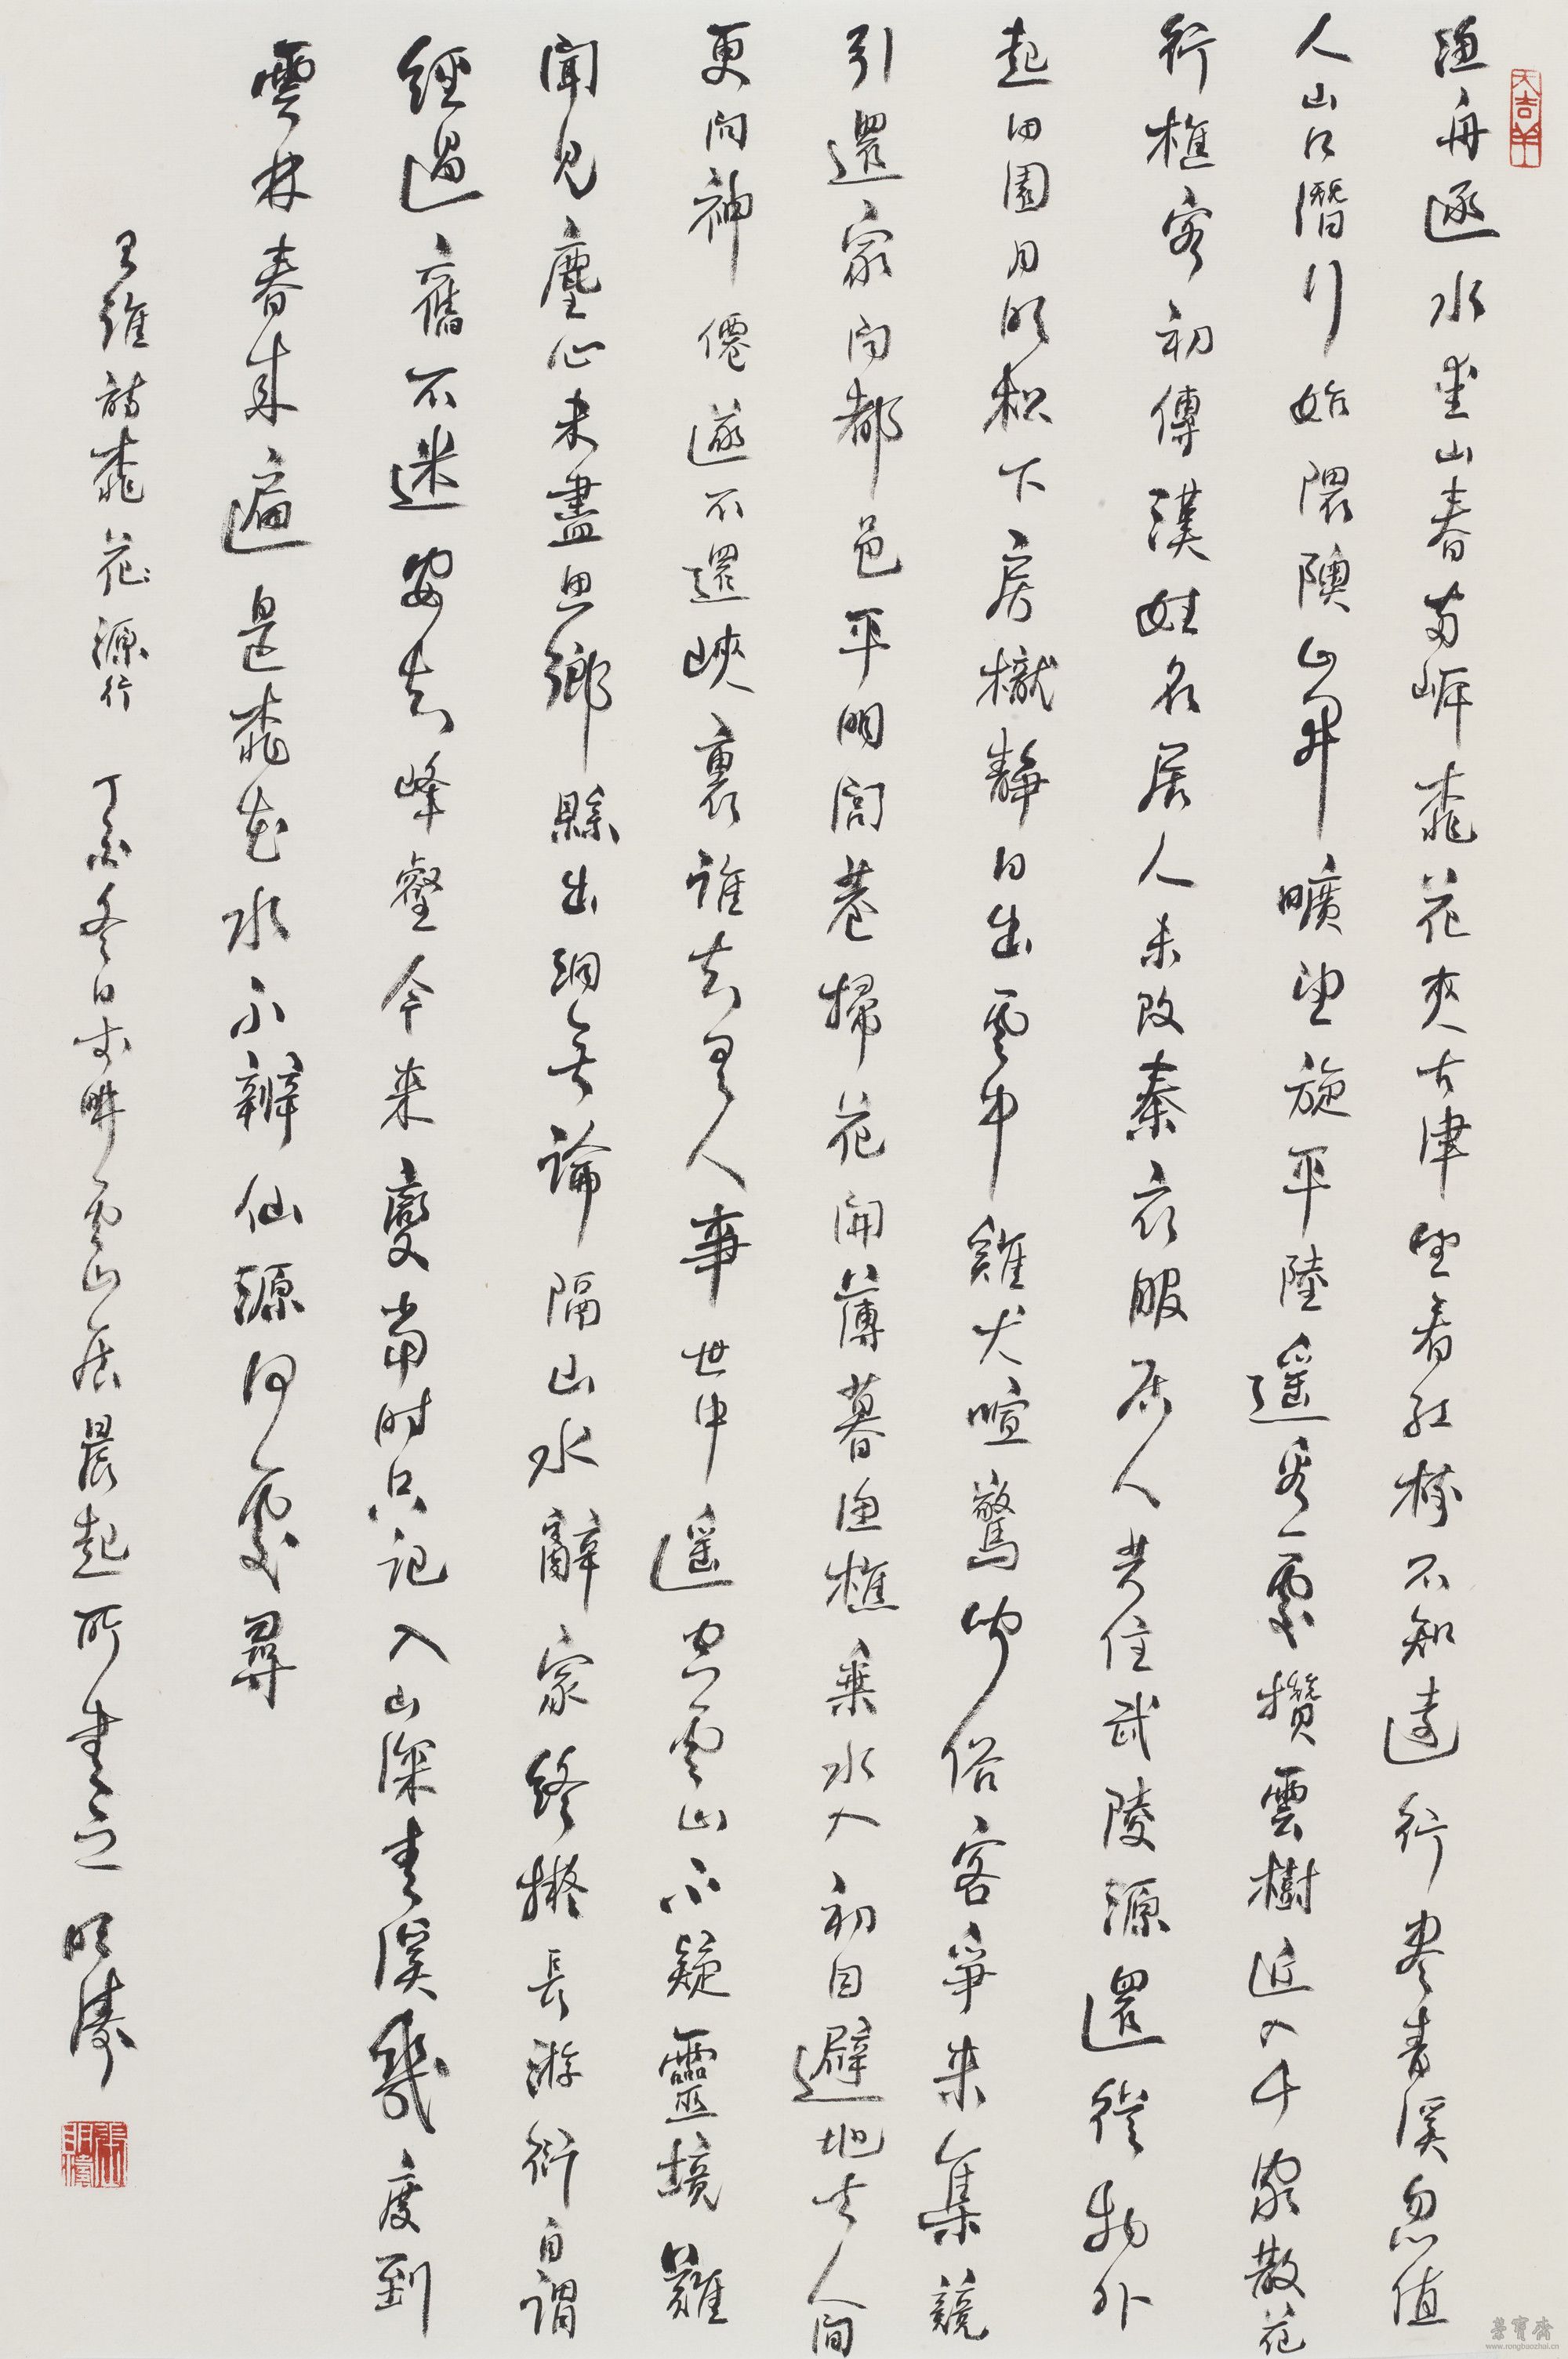 漁舟逐水愛山春兩岸桃花夾古津坐看紅樹不知遠行盡青溪忽值
人山口潛行始隈隩山開曠望旋平陸遥看一處攢雲樹近入千家散花
竹樵客初傳漢姓名居人未改秦衣服居人共住武陵源還從物外
起田園月明松下房櫳靜日出雲中雞犬喧驚聞俗客爭來集競
引還家問都邑平明閭巷掃花開薄暮漁樵乘水入初因避地去人間
更問神僊遂不還峽裏誰知有人事世中遥空雲山不疑靈境難
聞見塵心未盡思鄉縣出洞無論隔山水辭家終擬長游衍自謂
經過舊不迷安知峰壑今来變當時只記入山深青溪幾度到
雲林春來遍是桃花水不辨仙源何處尋
王維詩桃花源行 丁酉冬日於畊雲山居晨起所書之 明濤
大吉羊
榮寶齋
www.rongbaozhai.cn